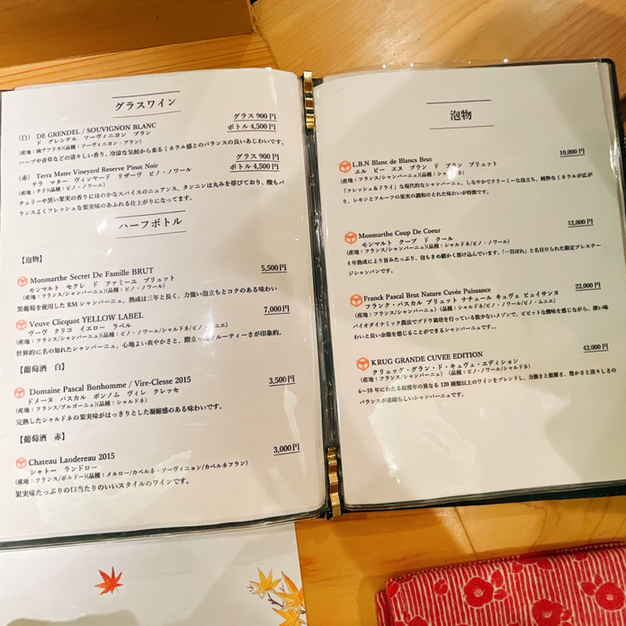 グラスワイン
(白) DE GRENDEL / SOUVIGNON BLANC グラス 900円
ド グレンデル ソーヴィニヨン ブラン ボトル 4,500円
(産地：南アフリカ)(品種：ソーヴィニヨン・ブラン)
ハーブや青草などの清々しい香り、冷涼な気候から来るミネラル感とのバランスの良いあじわいです。
(赤) Terra Mater Vineyard Reserve Pinot Noir グラス 900円
テラ マター ヴィンヤード リザーヴ ピノ・ノワール ボトル 4,500円
(産地：チリ)(品種：ピノ・ノワール)
チェリーや黒い果実の香りにほのかなスパイスのニュアンス、タンニンは丸みを帯びており、酸もバ
ランスよくフレッシュな果実味のあふれる仕上がりになってます。
ハーフボトル
【泡物】
Monmarthe Secret De Famille BRUT 5,500円
モンマルト セクレ ド ファミーユ ブリュット
(産地：フランス/シャンパーニュ)(品種：ピノ・ノワール)
黒葡萄を使用した RM シャンパーニュ、熟成は三年と長く、力強い泡立ちとコクのある味わい
Veuve Clicquot YELLOW LABEL 7,000円
ヴーヴ クリコ イエロー ラベル
(産地：フランス/シャンパーニュ)(品種：ピノ・ノワール/シャルドネ/ピノ・ムニエ)
世界的に名の知れたシャンパーニュ、心地よい爽やかさと、際立ったフルーティーさが印象的。
【葡萄酒 白】
Domaine Pascal Bonhomme / Vire-Clesse 2015 3,500円
ドメーヌ パスカル ボンノム ヴィレ クレッセ
(産地：フランス/ブルゴーニュ)(品種：シャルドネ)
完熟したシャルドネの果実味がはっきりとした凝縮感のある味わいです。
【葡萄酒 赤】
Chateau Landereau 2015 3,000円
シャトー ランドロー
(産地：フランス/ボルドー)(品種：メルロー/カベルネ・ソーヴィニョン/カベルネフラン)
果実味たっぷりの口当たりのいいスタイルのワインです。
泡物
L.B.N Blanc de Blancs Brut 10,000円
エル ビー エヌ ブラン ド ブラン ブリュット
(産地：フランス/シャンパーニュ)(品種：シャルドネ)
「フレッシュ＆ドライ」な現代的なシャンパーニュ、しなやかでクリーミーな泡立ち、純粋なミネラルが広が
り、レモンとフルーツの果実の調和のとれた味わいが特徴です。
Monmarthe Coup De Coeur 12,000円
モンマルト クープ ド クール
(産地：フランス/シャンパーニュ)(品種：シャルドネ/ピノ・ノワール)
4年熟成により旨みたっぷり、泡もきめ細かく溶け込んでいます。「一目ぼれ」と名付けられた限定プレステー
ジシャンパンです。
Franck Pascal Brut Nature Cuvée Puissance 22,000円
フランク・パスカル ブリュット ナチュール キュヴェ ピュイサンス
(産地：フランス/シャンパーニュ)(品種：シャルドネ/ピノ・ノワール/ピノ・ムニエ)
バイオダイナミック農法でブドウ栽培を行っている数少ないメゾンで、ビビットな酸味を感じながら、深い味
わいと長い余韻を感じることができるシャンパーニュです…
KRUG GRANDE CUVEE EDITION 42,000円
クリュッグ・グラン・ド・キュヴェ・エディション
(産地：フランス/シャンパーニュ) (品種：ピノ・ノワール/シャルドネ)
6～10年にわたる収穫年の異なる 120種類以上のワインをブレンドし、力強さと複雑さ、豊かさと清々しさの
バランスが素晴らしいシャンパーニュ